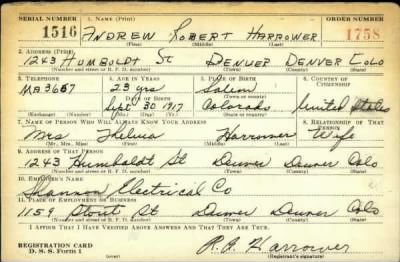 SERIAL NUMBER 1. NAME (Print) ORDER NUMBER
1516 ANDREW ROBERT HARROWER 1758
(First) (Middle) (Last)
2. ADDRESS (Print)
1243 HUMBOLDT St DENVER DENVER COLO
(Number and street or R. F. D. number) (Town) (County) (State)
3. TELEPHONE 4. AGE IN YEARS 5. PLACE OF BIRTH 6. COUNTRY OF CITIZENSHIP
MA3667 23 yrs Salem
DATE OF BIRTH (Town or county)
Sept 30 1917 Colorado United States
(Exchange) (Number) (Mo.) (Day) (Yr.) (State or country)
7. NAME OF PERSON WHO WILL ALWAYS KNOW YOUR ADDRESS 8. RELATIONSHIP OF THAT PERSON
Mrs Thelma Harrower Wife
(Mr., Mrs., Miss) (First) (Middle) (Last)
9. ADDRESS OF THAT PERSON
1243 Humboldt St Denver Denver Colo
(Number and street or R. F. D. number) (Town) (County) (State)
10. EMPLOYER'S NAME
Shannon Electrical Co
11. PLACE OF EMPLOYMENT OR BUSINESS
1159 Stout St Denver Denver Colo
(Number and street or R. F. D. number) (Town) (County) (State)
I AFFIRM THAT I HAVE VERIFIED ABOVE ANSWERS AND THAT THEY ARE TRUE.
REGISTRATION CARD
D. S. S. Form 1 Harrower
(Registrant's signature)